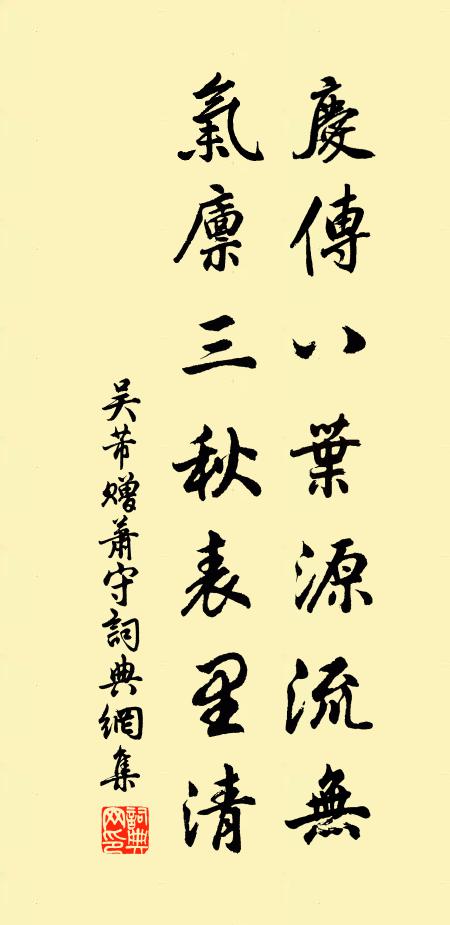 慶傳八葉源流無
氣廪三秋表里清
吴芾贈蕭守詞典網集
詞典網印